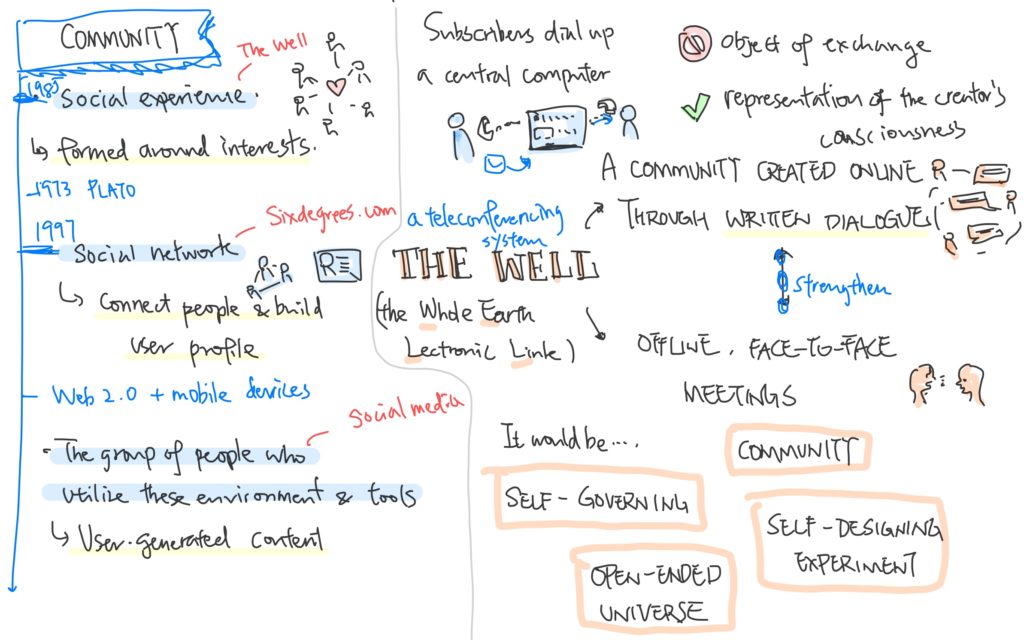 COMMUNITY
The Well
1985
Social experience.
↳ formed around interests.
1973 PLATO
1997
Sixdegrees.com
Social network
↳ Connect people & build
user profile
Web 2.0 + mobile devices
Social media
· The group of people who
utilize these environment & tools
↳ User-generated content
Subscribers dial up
a central computer
object of exchange
representation of the creator's
consciousness
A COMMUNITY CREATED ONLINE
THROUGH WRITTEN DIALOGUE
a teleconferencing
system
THE WELL
(the Whole Earth
Lectronic Link)
strengthen
OFFLINE, FACE-TO-FACE
MEETINGS
It would be....
COMMUNITY
SELF-GOVERNING
SELF-DESIGNING
EXPERIMENT
OPEN-ENDED
UNIVERSE